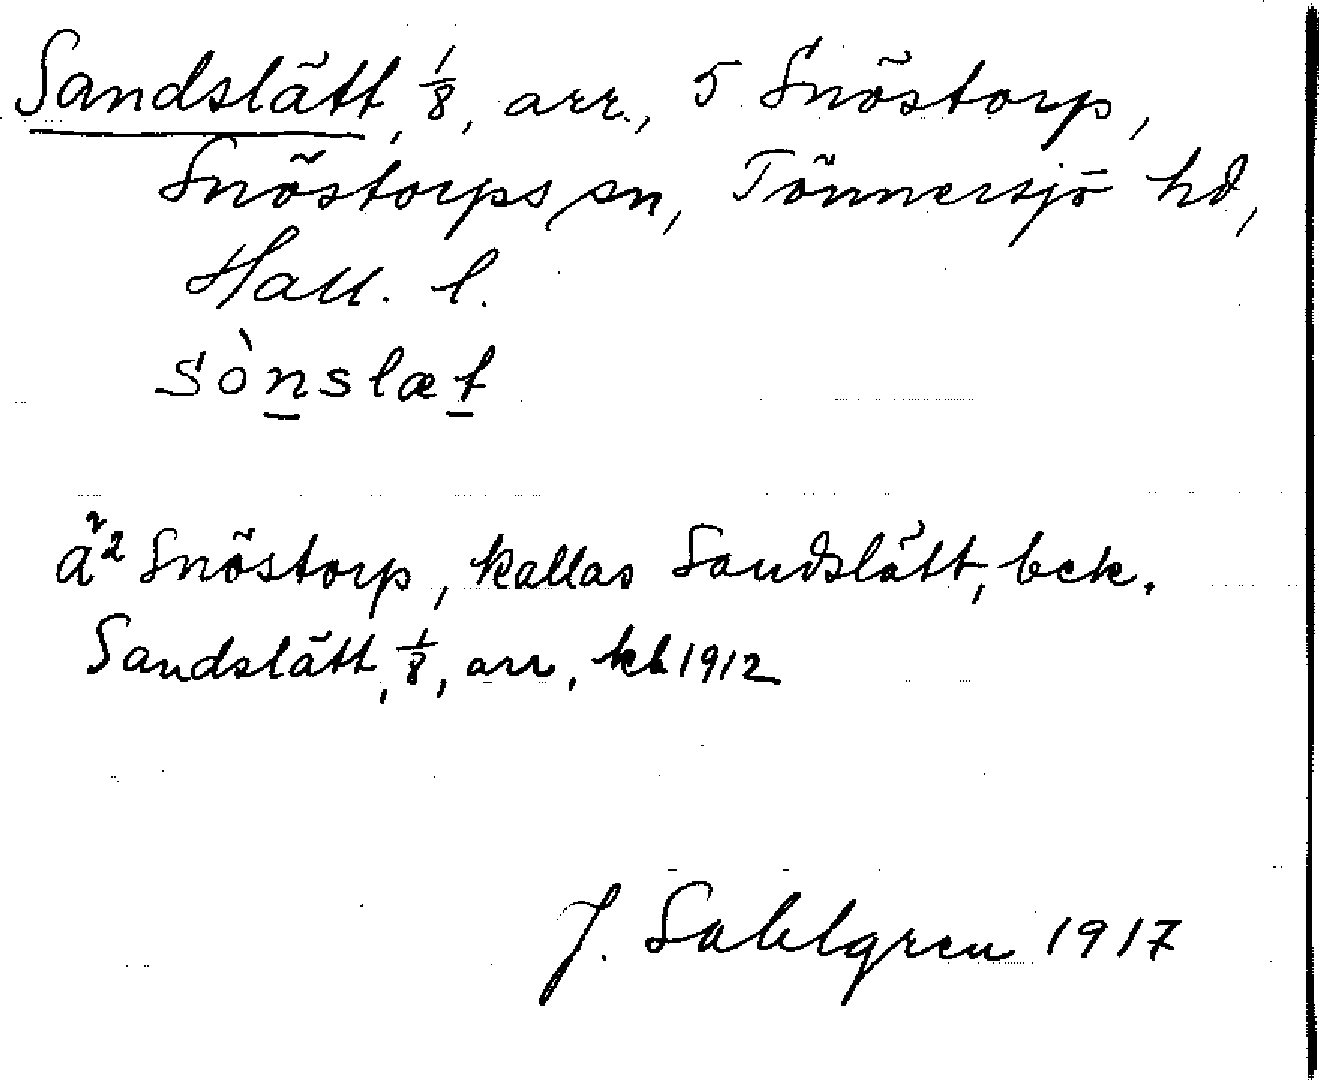 Sandslätt, 1/8, arr., 5 Snöstorp,
Snöstorps sn, Tönnersjö hd,
Hall. l.
sònslæt
Snöstorp, kallas Sandslätt, bck.
Sandslätt, 1/8, arr, kb 1912
J. Sahlgren 1917